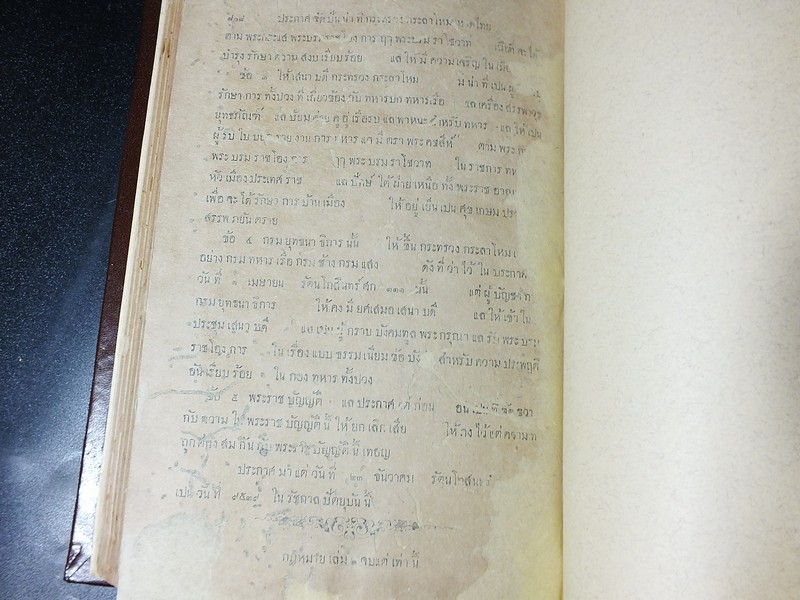 ๘๑๘ ประกาศ จัด ปันน่า ที่ กระทรวง กระลาโหม
ตาม พระกระแส พระบรม การ ฤๅ พระบรม ราโชวาท
บำรุง รักษา ความ สงบ เรียบ ร้อย แล ให้ มี ความ เจริญ ใน
ข้อ ๓ ให้ เสนา บดี กระทรวง กระลาโหม มี น่า ที่ เปน
รักษา การ ทั้งปวง ที่ เกี่ยวข้อง กับ ทหารบก ทหารเรือ แล เครื่อง สรรพาวุธ
ยุทธภัณฑ์ แล ป้อม ค่าย คู อู่ เรือรบ แล พาหนะ สำหรับ ทหาร แล ให้ เปน
ผู้ รับ ใบ บอก ราย งาน การ ทหาร แล มี ตรา พระ คชสีห์ ตาม พระ
พระ บรม ราช โอง การ ฤๅ พระ บรม ราโชวาท ใน ราชการ
หัว เมือง ประเทศ ราช แล ปักษ์ ใต้ ฝ่าย เหนือ ทั้ง พระราช
เพื่อ จะ ได้ รักษา การ บ้าน เมือง ให้ อยู่ เย็น เปน ศุข เกษม
สรรพ ภยันตราย
ข้อ ๔ กรม ยุทธนา ธิการ นั้น ให้ ขึ้น กระทรวง กระลาโหม
อย่าง กรม ทหาร เรือ กรม ช้าง กรม แสง ดัง ที่ ว่า ไว้ ใน ประกาศ
วัน ที่ ๑ เมษายน รัตนโกสินทร์ ศก ๑๑๑ นั้น แต่ ผู้ บัญชา
กรม ยุทธนา ธิการ ให้ คง มี ยศ เสมอ เสนา บดี แล ให้ เข้า
ประชุม เสนา บดี แล เปน ผู้ กราบ บังคมทูล พระ กรุณา แล รับ พระ บรม
ราชโอง การ ใน เรื่อง แบบ ธรรมเนียม ข้อ บังคับ สำหรับ ความ ประพฤติ
อัน เรียบ ร้อย ใน กอง ทหาร ทั้งปวง
ข้อ ๕ พระราช บัญญัติ แล ประกาศ แต่ ก่อน อัน เปน ที่ ขัด ขวาง
กับ ความ ใน พระราช บัญญัติ นี้ ให้ ยก เลิก เสีย ให้ คง ไว้ แต่ ความ
ถูก ต้อง สม กัน กับ พระราช บัญญัติ นี้ เทอญ
ประกาศ มา แต่ วัน ที่ ๒๓ ธันวาคม
เปน วัน ที่ ๙๕๓๙ ใน รัชกาล ปัตยุบัน นี้
กฎหมาย เล่ม ๒ จบ แต่ เท่า นี้